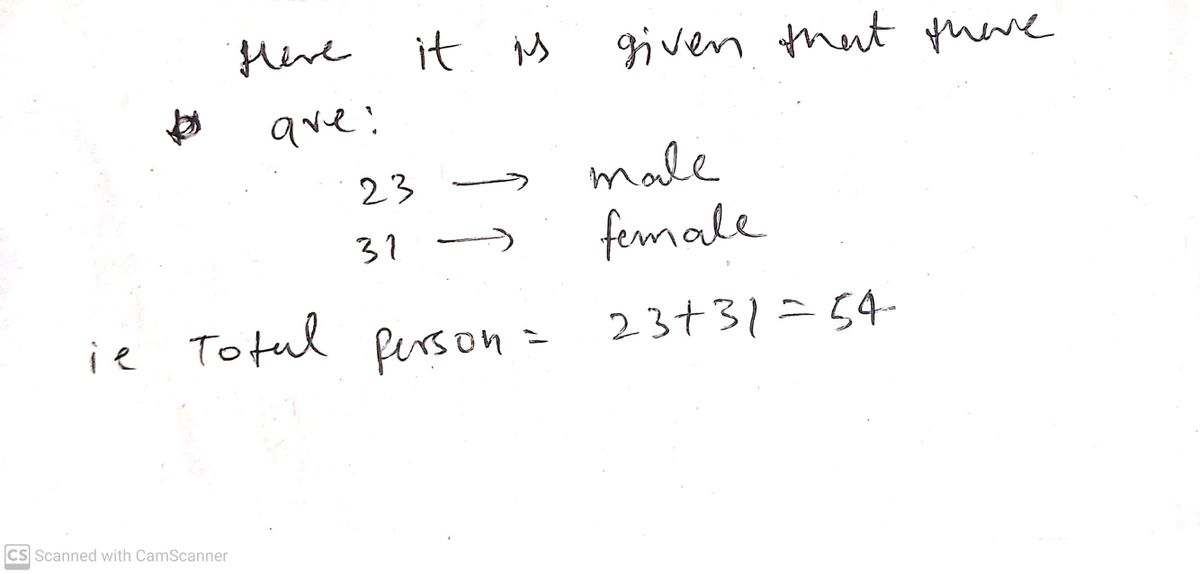 Here it is given that there
are:
23 → male
31 → female
ie Total person = 23+31 = 54
CS Scanned with CamScanner